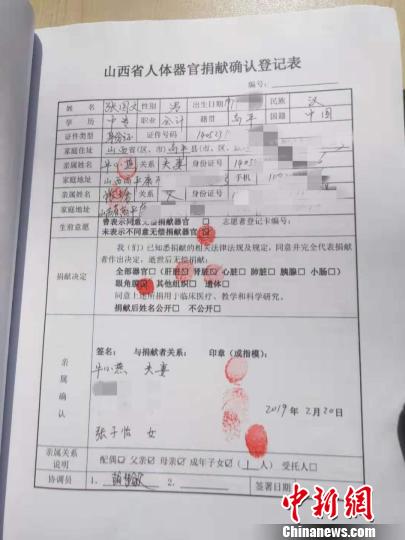 山西省人体器官捐献确认登记表
编号:
姓 名 张国文 性别 男 出生日期 民族 汉
学 历 中专 职业 会计 籍贯 高平 国籍 中国
证件类型 身份证 证件号码 140523
家庭住址 山西省(区、市)高平县(市、区)
亲属姓名 牛小燕 关系 夫妻 身份证号
家庭地址 手机
亲属姓名 关系 父 身份证号
家庭地址
生前意愿 曾表示同意无偿捐献器官□ 志愿者登记卡编号:
未表示不同意无偿捐献器官
捐献决定 我(们)已知悉捐献的相关法律法规及规定,同意并完全代表捐献
者作出决定,逝世后无偿捐献:
全部器官□(肝脏 肾脏 心脏□ 肺脏□ 胰腺□ 小肠□)
眼角膜 其他组织□ 遗体□
同意上述所捐用于临床医疗、教学和科学研究。
捐献后姓名公开□ 不公开□
亲属确认 签名: 与捐献者关系: 印章(或指模):
牛小燕 夫妻
2019年2月20日
张子怡 女
亲属关系说明 配偶☑ 父亲☑ 母亲☑ 成年子女☑(1人) 受托人□
协调员 1. 2. 签署日期
中新网
Chinanews.com